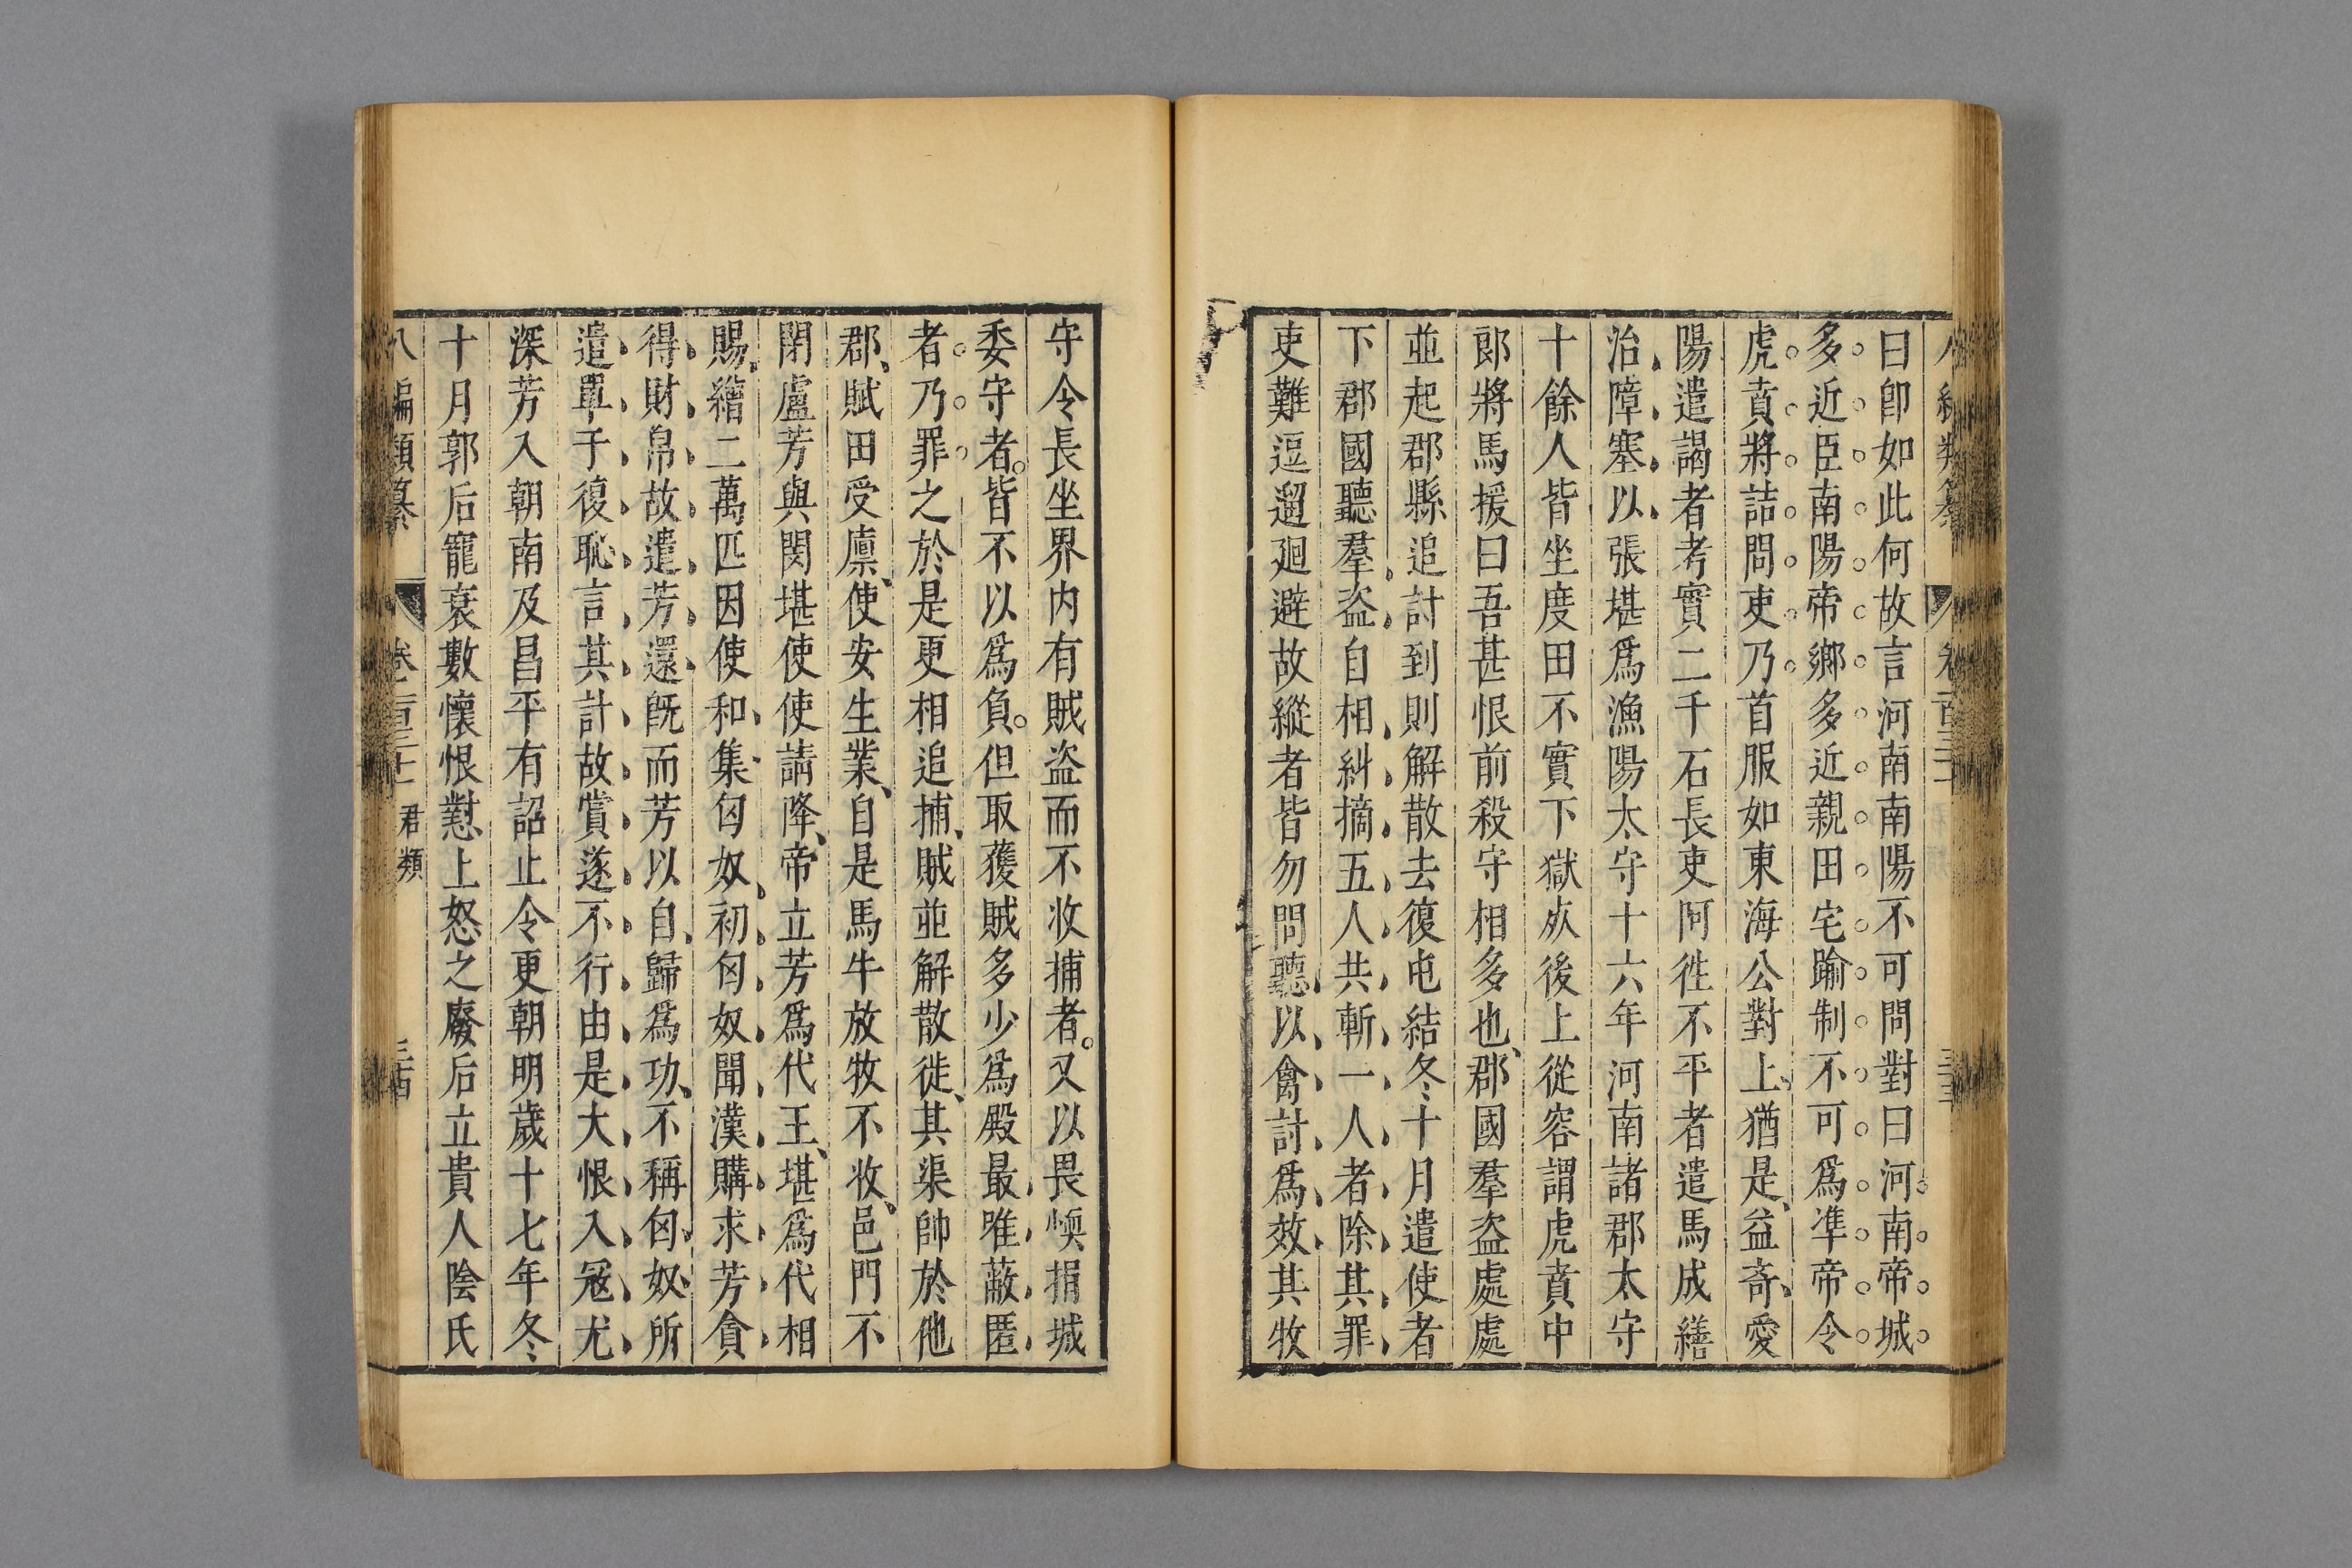 曰卽如此何故言河南南陽不可問對曰河南帝城
多近臣南陽帝鄉多近親田宅踰制不可爲準帝令
虎賁將詰問吏乃首服如東海公對上猶是益奇愛
陽遣謁者考實二千石長吏阿徃不平者遣馬成繕
治障塞以張堪爲漁陽太守十六年河南諸郡太守
十餘人皆坐度田不實下獄㱙後上從容謂虎賁中
郎將馬援曰吾甚恨前殺守相多也郡國羣盗處處
並起郡縣追討到則解散去復屯結冬十月遣使者
下郡國聽羣盗自相糾摘五人共斬一人者除其罪
吏難逗遛廻避故縱者皆勿問聽以禽討爲效其牧
守令長坐界内有賊盗而不收捕者又以畏愞捐城
委守者皆不以爲負但取獲賊多少爲殿最唯蔽匿
者乃罪之於是更相追捕賊並解散徙其渠帥於他
郡賦田受廩使安生業自是馬牛放牧不收邑門不
閉盧芳與閔堪使使請降帝立芳爲代王堪爲代相
賜繒二萬匹因使和集匈奴初匈奴聞漢購求芳貪
得財帛故遣芳還旣而芳以自歸爲功不稱匈奴所
遣單于復恥言其計故賞遂不行由是大恨入冦尤
深芳入朝南及昌平有詔止令更朝明歲十七年冬
十月郭后寵衰數懷恨懟上怒之廢后立貴人陰氏
八編類纂 卷二百三十一 君類 三十四